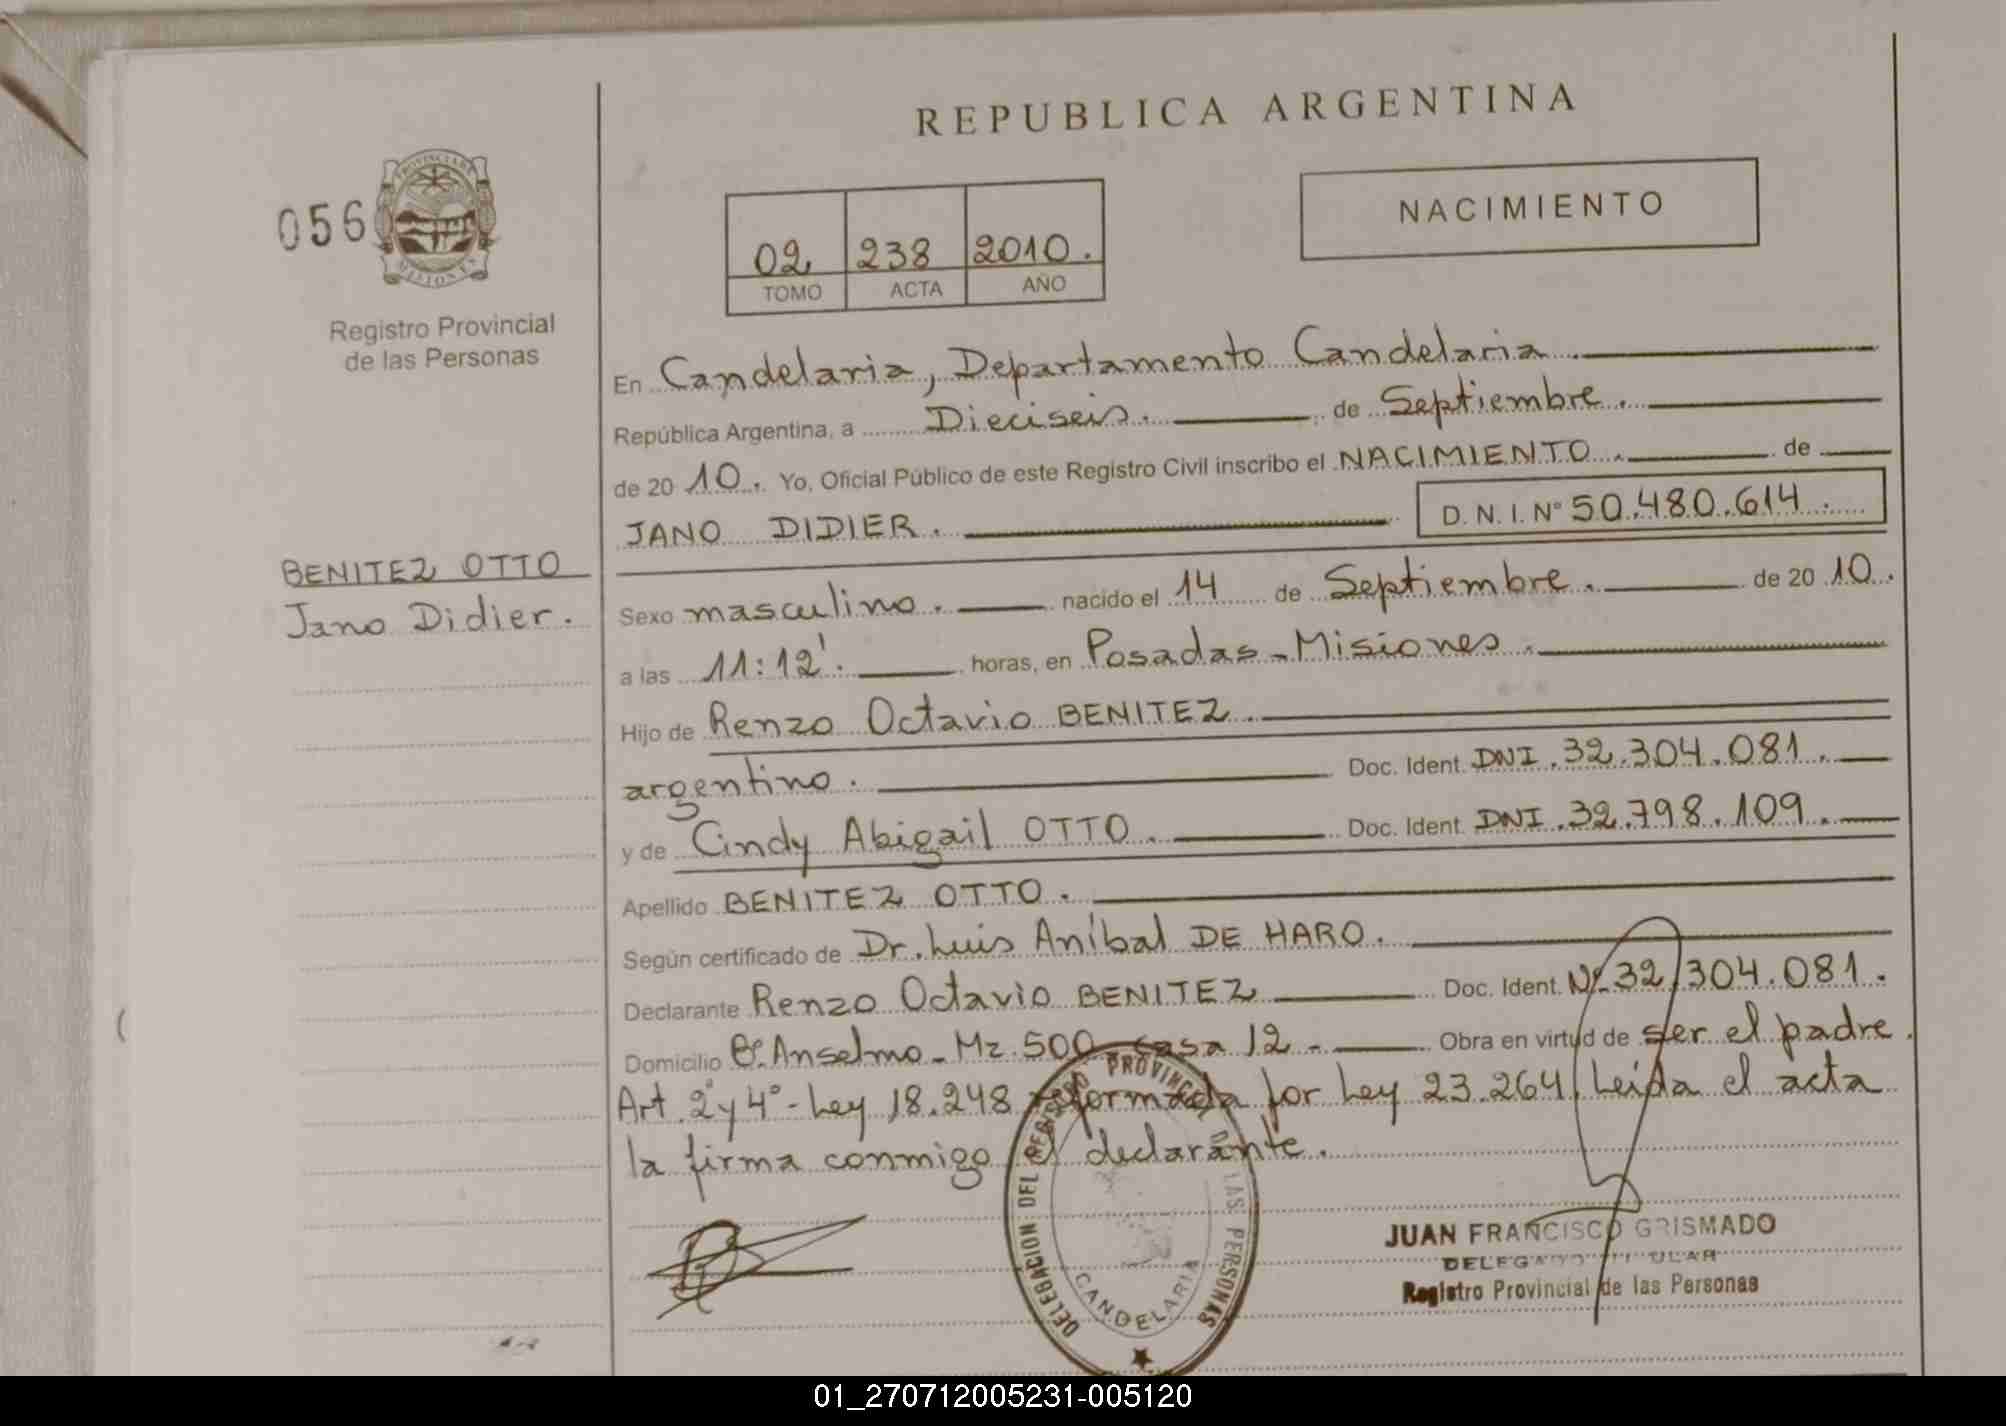 REPUBLICA ARGENTINA
056
PROVINCIA DE
MISIONES
Registro Provincial
de las Personas
02 238 2010.
TOMO ACTA AÑO
NACIMIENTO
En Candelaria, Departamento Candelaria
República Argentina, a Dieciseis. de Septiembre.
de 20 10. Yo, Oficial Público de este Registro Civil inscribo el NACIMIENTO. de
JANO DIDIER. D. N. I. N° 50.480.614.
BENITEZ OTTO
Jano Didier.
Sexo masculino. nacido el 14 de Septiembre. de 20 10.
a las 11:12'. horas, en Posadas - Misiones.
Hijo de Renzo Octavio BENITEZ.
argentino. Doc. Ident. DNI. 32.304.081.
y de Cindy Abigail OTTO. Doc. Ident. DNI. 32.798.109.
Apellido BENITEZ OTTO.
Según certificado de Dr. Luis Aníbal DE HARO.
Declarante Renzo Octavio BENITEZ Doc. Ident. N° 32.304.081.
Domicilio B° Anselmo - Mz. 500 casa 12 - Obra en virtud de ser el padre.
Art. 2° y 4° - Ley 18.248 reformada por Ley 23.264. Leída el acta
la firma conmigo el declarante.
DELEGACION DEL REGISTRO PROVINCIAL DE LAS PERSONAS
CANDELARIA
JUAN FRANCISCO GRISMADO
DELEGADO TITULAR
Registro Provincial de las Personas
01_270712005231-005120